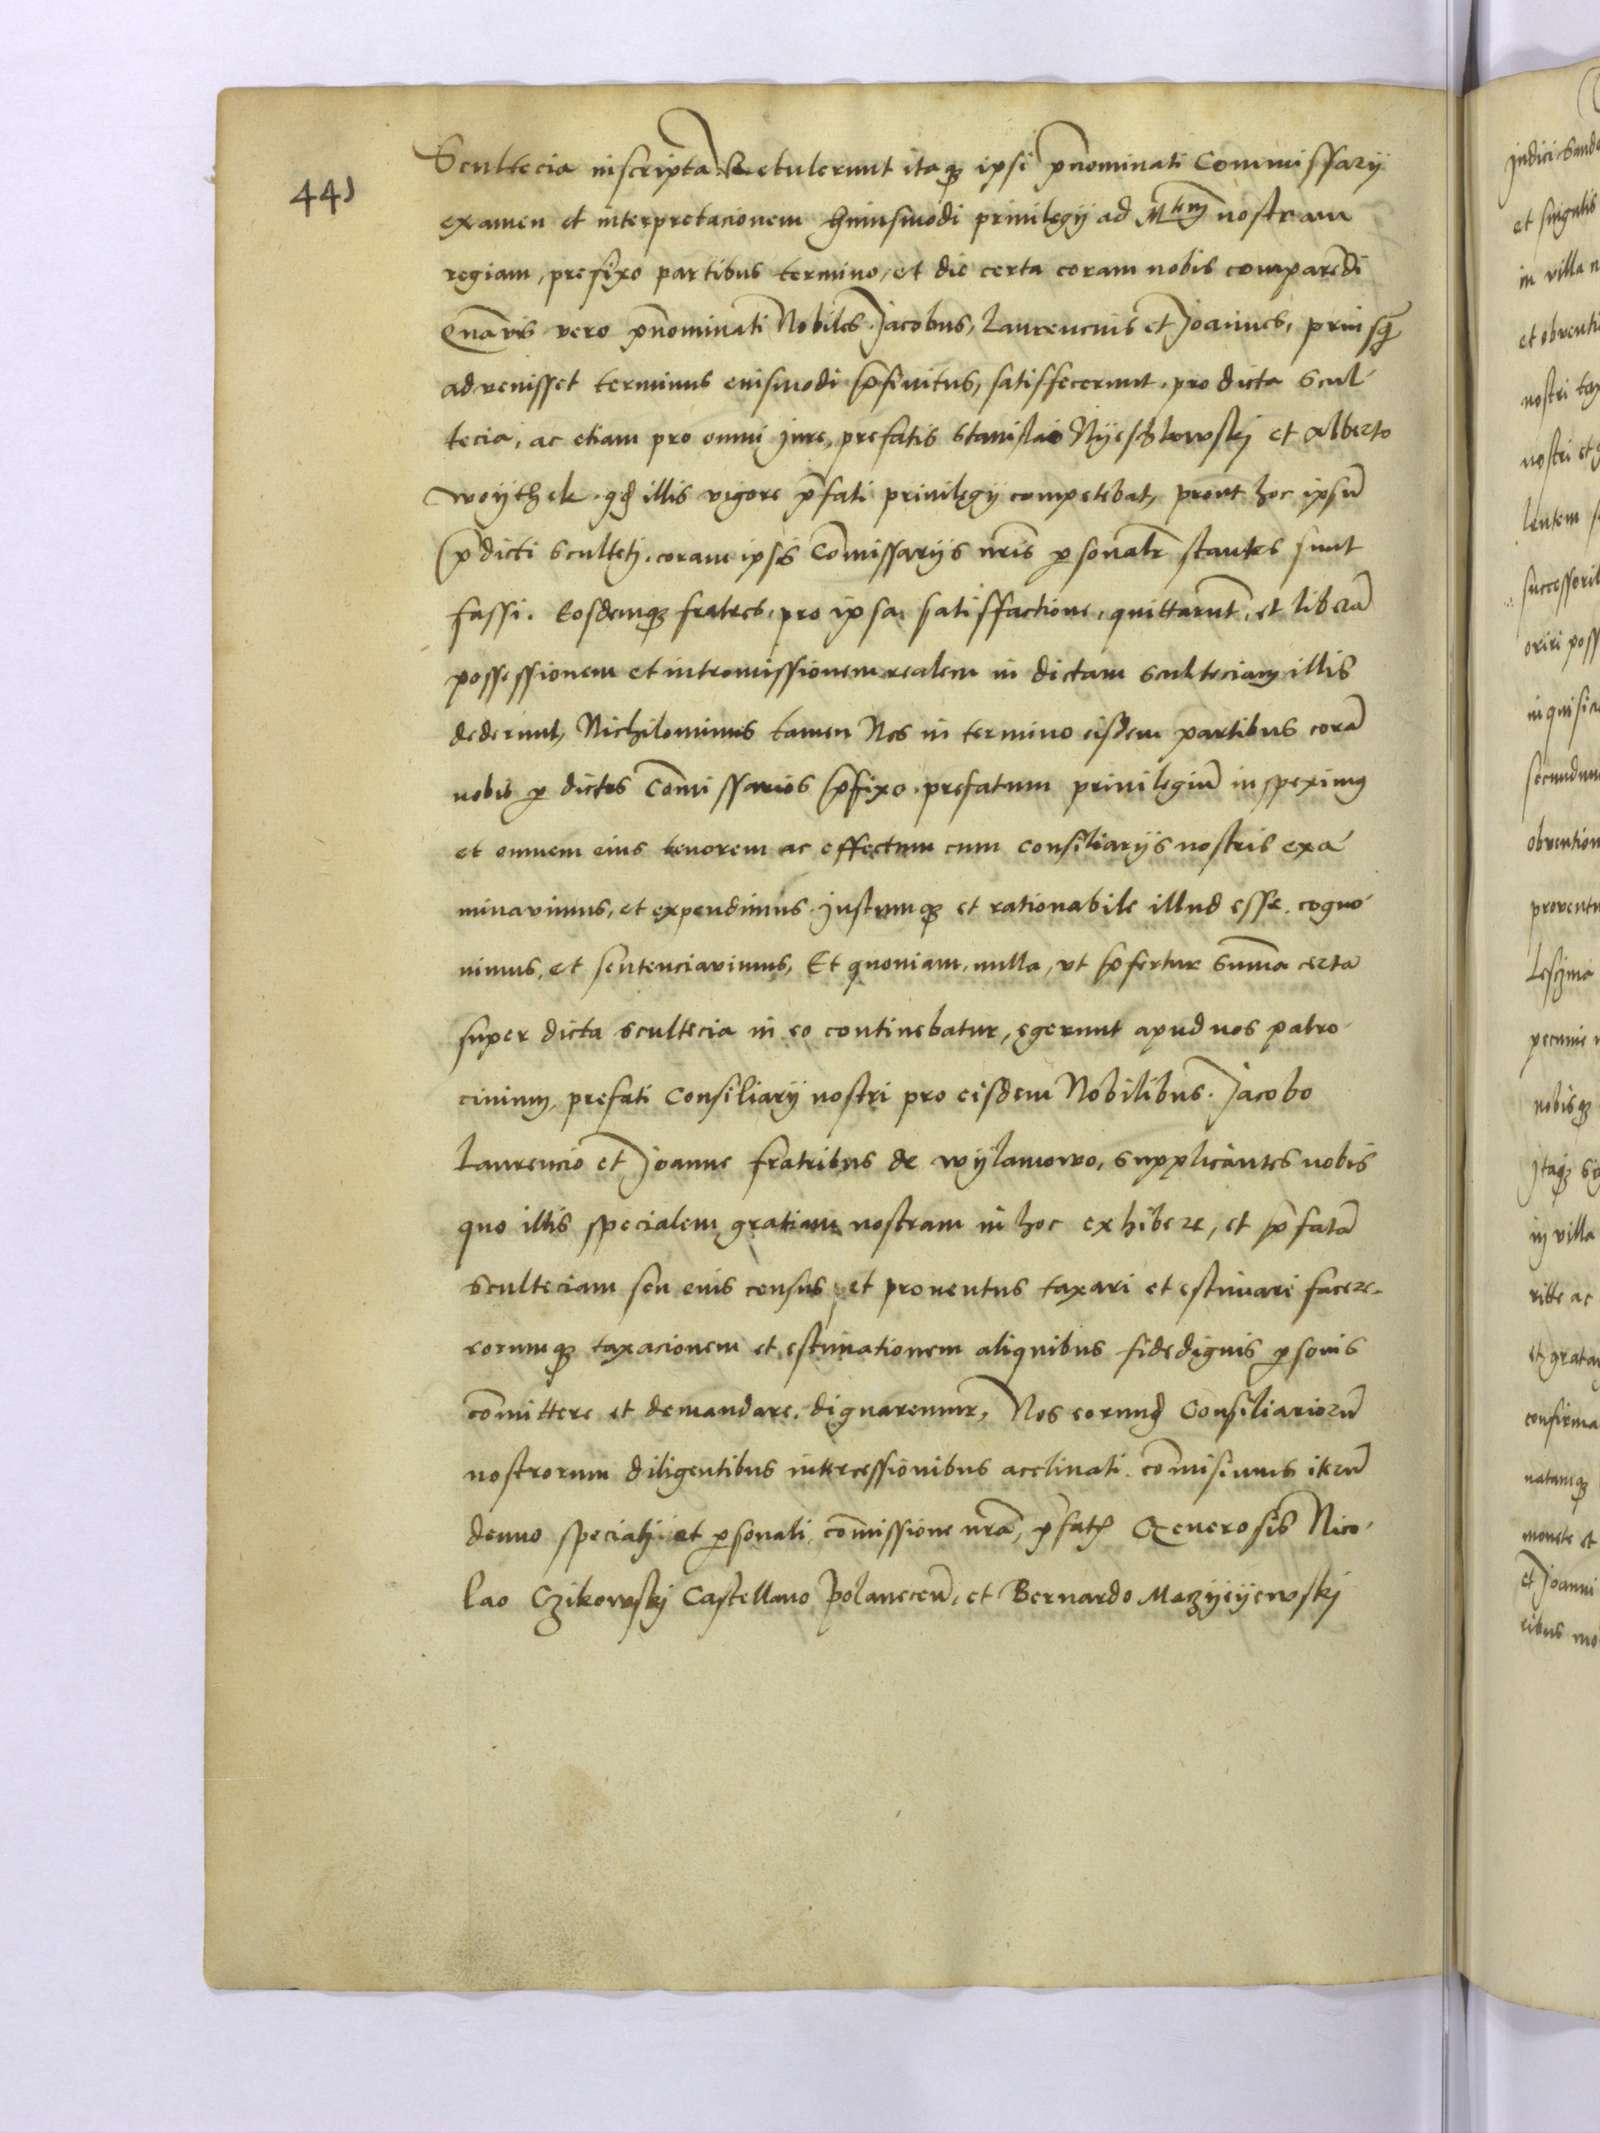 441
Scultecia inscripta Retulerunt itaq₃ ipsi p̄nominati Commissarij
examen et interpretacionem huiusmodi priuilegij ad M^tem nostram
regiam, prefixo partibus termino, et die certa coram nobis comparēdi
Quāvis vero p̄nominati Nobiles Jacobus, Laurencius et Joannes, priusq̄
advenisset terminus eiusmodi p̄finitus, satisfecerunt pro dicta scul-
tecia, ac etiam pro omni jure, prefatis Stanislao Nyeschkowskj et Alberto
Woythek qd illis vigore p̄fati priuilegij competebat, prout hoc ipsū
p̄dicti scultetj coram ipsis Cōmissarijs nr̄is psonalr̄ stantes sunt
fassi. Eosdemq₃ fratres, pro ipsa satisfactione, quittarūt, et liberā
possessionem et intromissionem realem in dictam scultetiam illis
dederunt, Nichilominus tamen Nos in termino eisdem partibus corā
nobis p dictos Cōmissarios p̄fixo prefatum priuilegiū inspeximus
et omnem eius tenorem ac effectum cum consiliarijs nostris exa-
minavimus, et expendimus justumq₃ et rationabile illud esse cogno-
uimus, et sentenciavimus, Et quoniam nulla, vt p̄fertur sūma certa
super dicta scultecia in eo continebatur, egerunt apud nos patro-
cinium prefati Consiliarij nostri pro eisdem Nobilibus Jacobo
Laurencio et Joanne fratribus de Wylamowo, supplicantes nobis
quo illis specialem gratiam nostram in hoc exhibere, et p̄fatā
sculteciam seu eius census et prouentus taxari et estimari facere
eorumq₃ taxacionem et estimationem aliquibus fidedignis psonis
cōmittere et demandare dignaremur, Nos eorund Consiliariorū
nostrorum diligentibus intercessionibus acclinati cōmisimus iterū
denuo speciali et psonali cōmissione nr̄a, p̄fatis Generosis Nico-
lao Czikowskj Castellano Polanecen̄, et Bernardo Maczyeyewskj